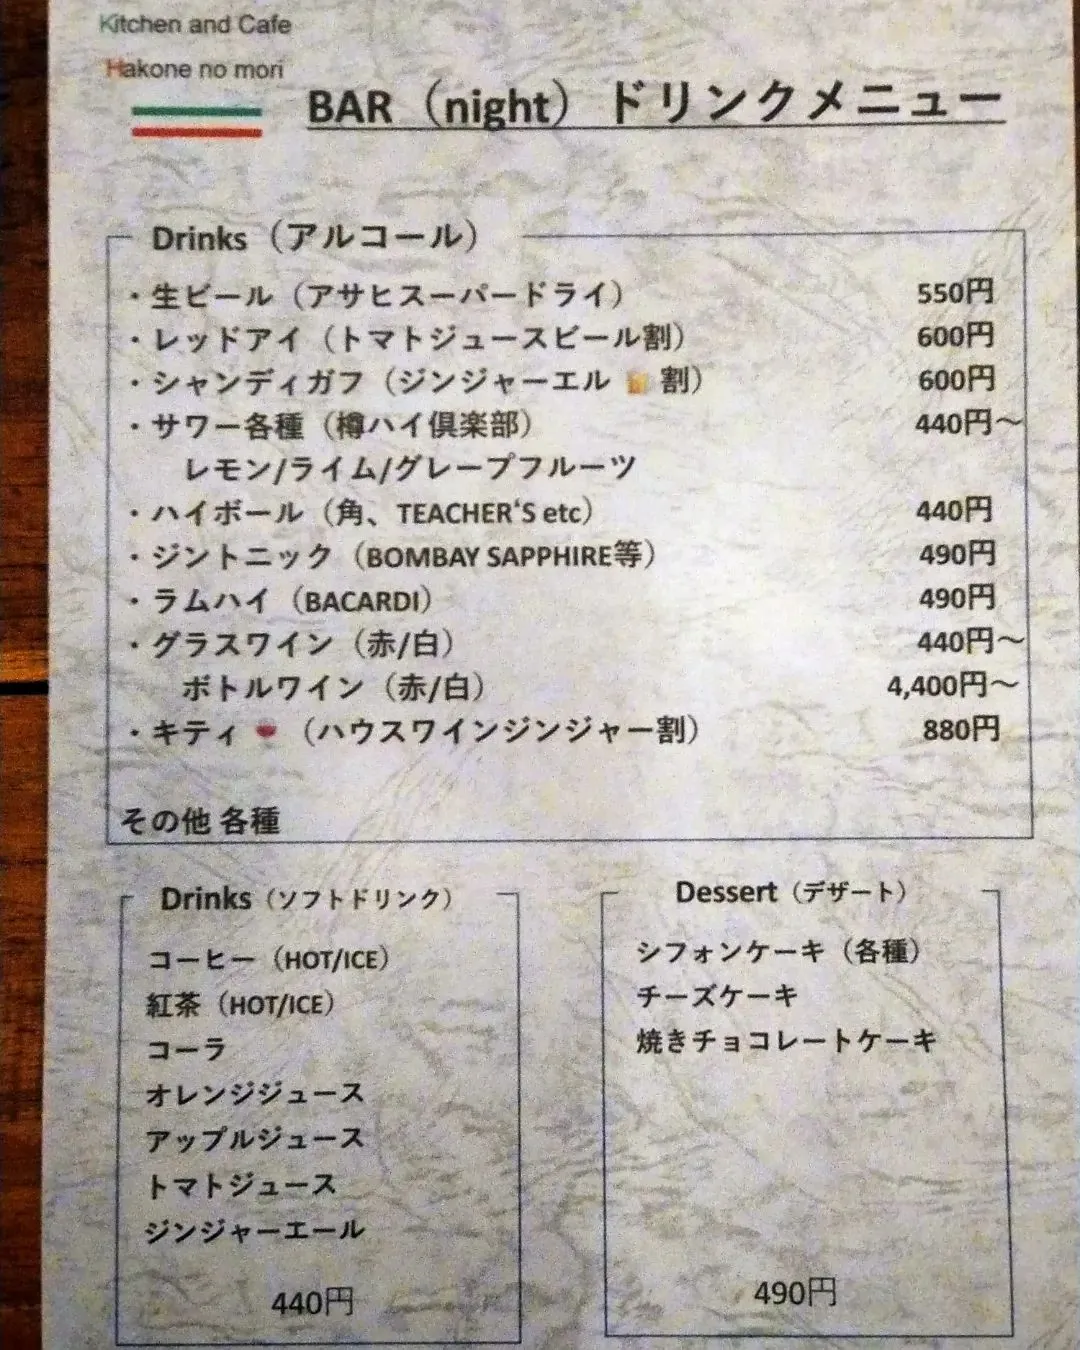 Kitchen and Cafe
Hakone no mori
BAR（night）ドリンクメニュー
Drinks（アルコール）
・生ビール（アサヒスーパードライ） 550円
・レッドアイ（トマトジュースビール割） 600円
・シャンディガフ（ジンジャーエル 🍺 割） 600円
・サワー各種（樽ハイ倶楽部） 440円～
レモン/ライム/グレープフルーツ
・ハイボール（角、TEACHER‘S etc） 440円
・ジントニック（BOMBAY SAPPHIRE等） 490円
・ラムハイ（BACARDI） 490円
・グラスワイン（赤/白） 440円～
ボトルワイン（赤/白） 4,400円～
・キティ🍷（ハウスワインジンジャー割） 880円
その他 各種
Drinks（ソフトドリンク）
コーヒー（HOT/ICE）
紅茶（HOT/ICE）
コーラ
オレンジジュース
アップルジュース
トマトジュース
ジンジャーエール
440円
Dessert（デザート）
シフォンケーキ（各種）
チーズケーキ
焼きチョコレートケーキ
490円